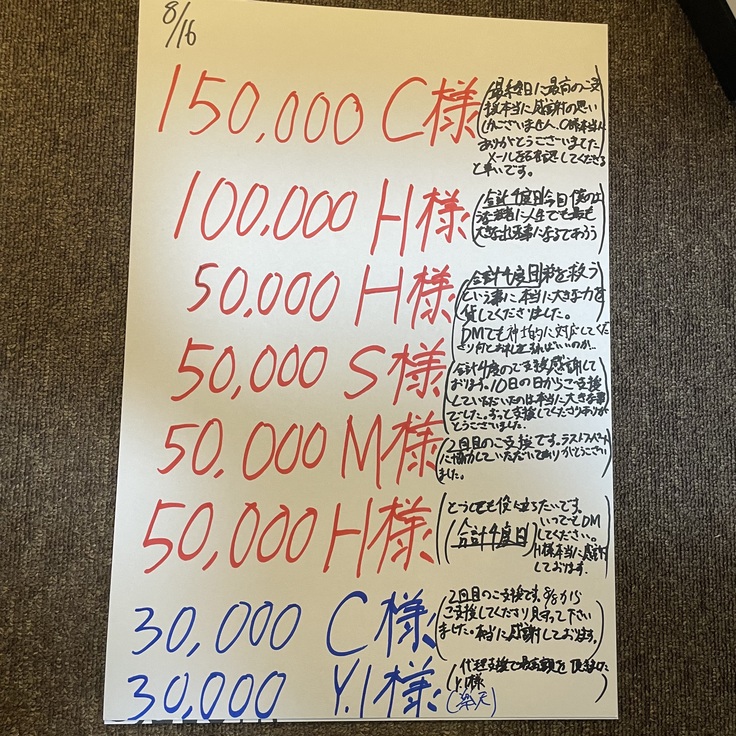 8/16
150,000 C様
(最終日に最高のご支
援本当に感謝の思い
しかございません。C様本当に
ありがとうございました
メールを確認してくださる
と幸いです。
100,000 H様
(合計4度目 今日 僕の
人生でも最も
大きな出来事になるであろう)
50,000 H様
(合計4度目 弟を救う
という事に本当に大きな力を
貸してくださりました。
DMでも神 的に対応してくだ
さり何とお礼を ばいいのか…
50,000 S様
(合計4度のご支援感謝して
おります。10日の日からご支援
していただいたのは本当に大きな事
でした。ずっと支援してくださりありが
とうございました。
50,000 M様
(2回目のご支援です。ラストスパート
に協力していただいてありがとうござい
ました。
50,000 H様
(どうしても役に立ちたいです。
(合計4度目)
いつでもDM
してください。
H様本当に感謝
しております。
30,000 C様
(2回目のご支援です。8/8から
ご支援してくださり見守って下さい
ました。本当に感謝しております。)
30,000 Y.I様
(代理支援で最高額を頂きました
Y.I様)
(楽天)